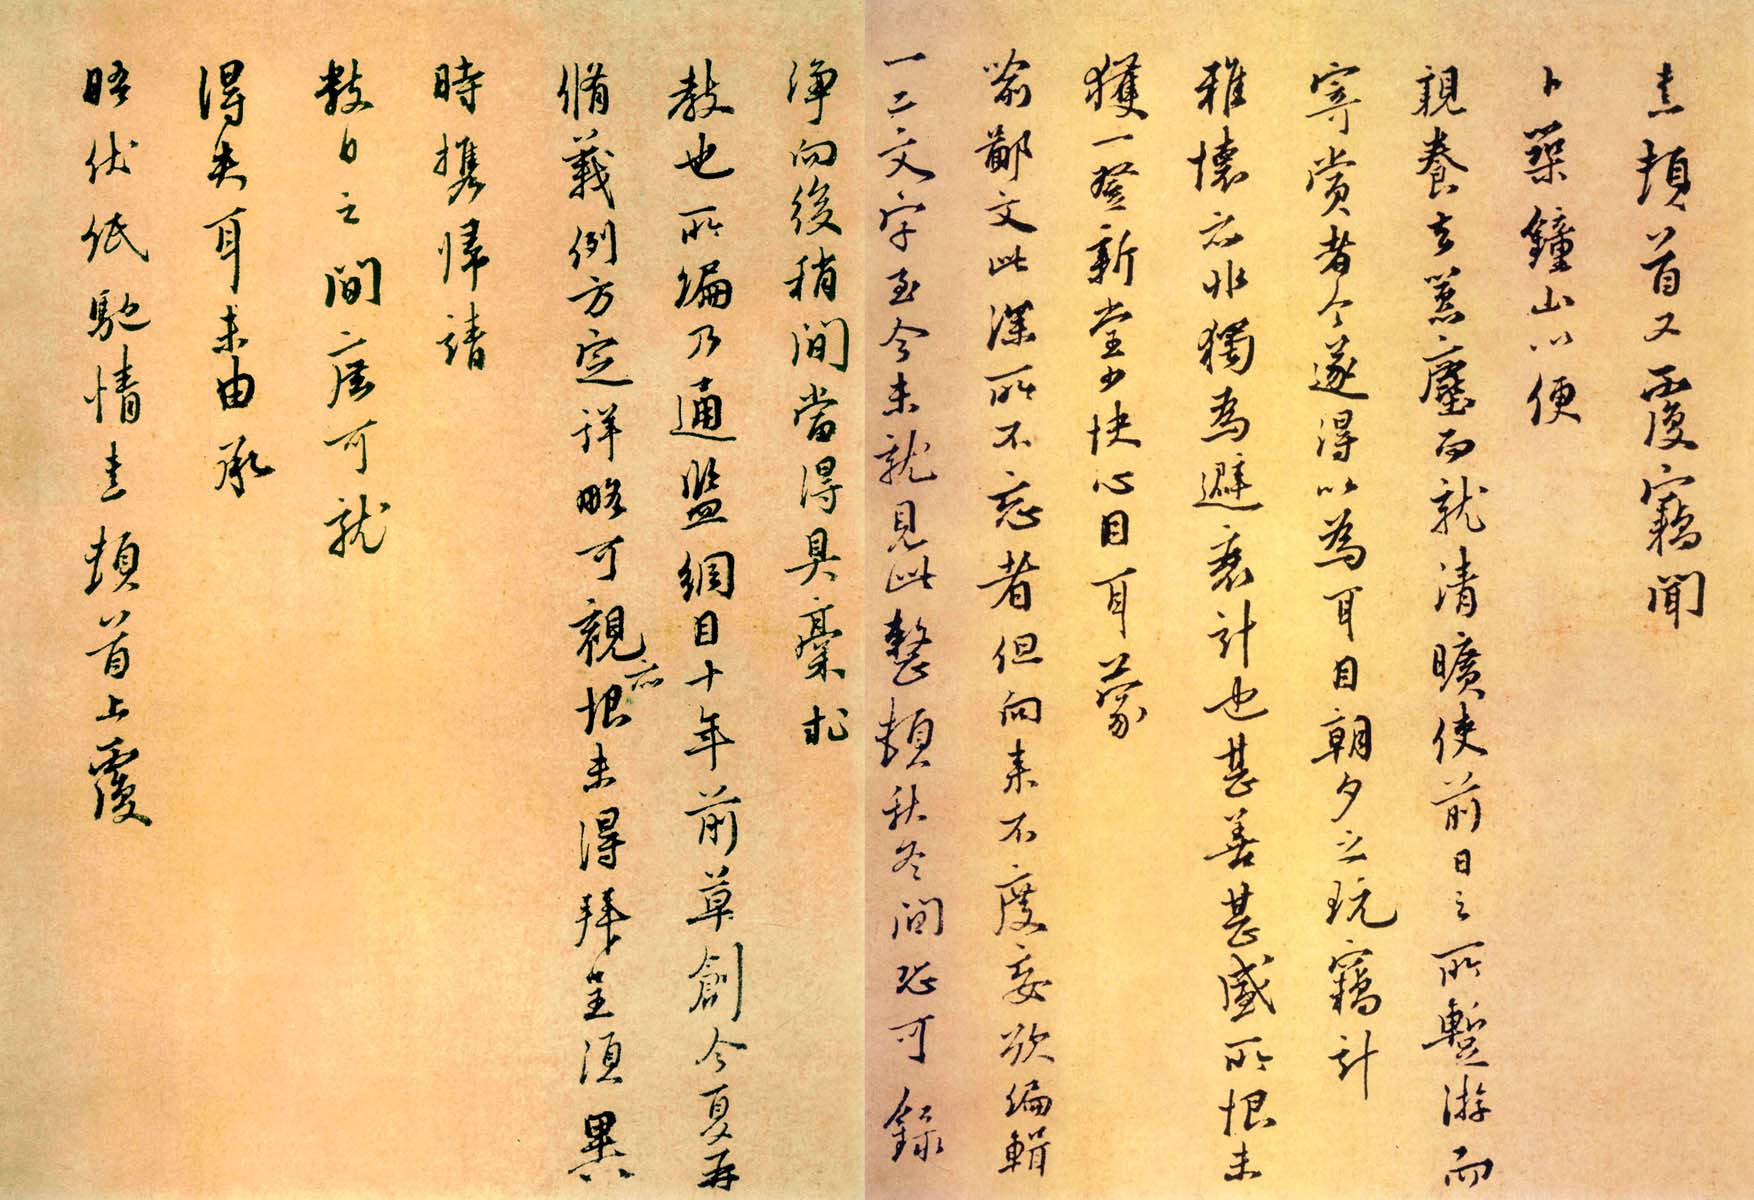 熹頓首又覆竊聞
卜築鐘山以便
親養去囂塵而就清曠使前日之所暫游而
寄賞者今遂得以為耳目朝夕之玩竊計
雅懷亦非獨為避衰計也甚善甚盛所恨未
獲一登新堂少快心目耳蒙
喻鄙文此深所不忘者但向來不度妄欲編輯
一二文字至今未就見此整頓秋冬間恐可錄
淨向後稍間當得具稾求
教也所編乃通鑑綱目十年前草創今夏再
脩義例方定詳略可觀亦恨未得拜呈須異
時攜歸請
教日之間度可就
得失耳未由承
晤伏紙馳情熹頓首上覆